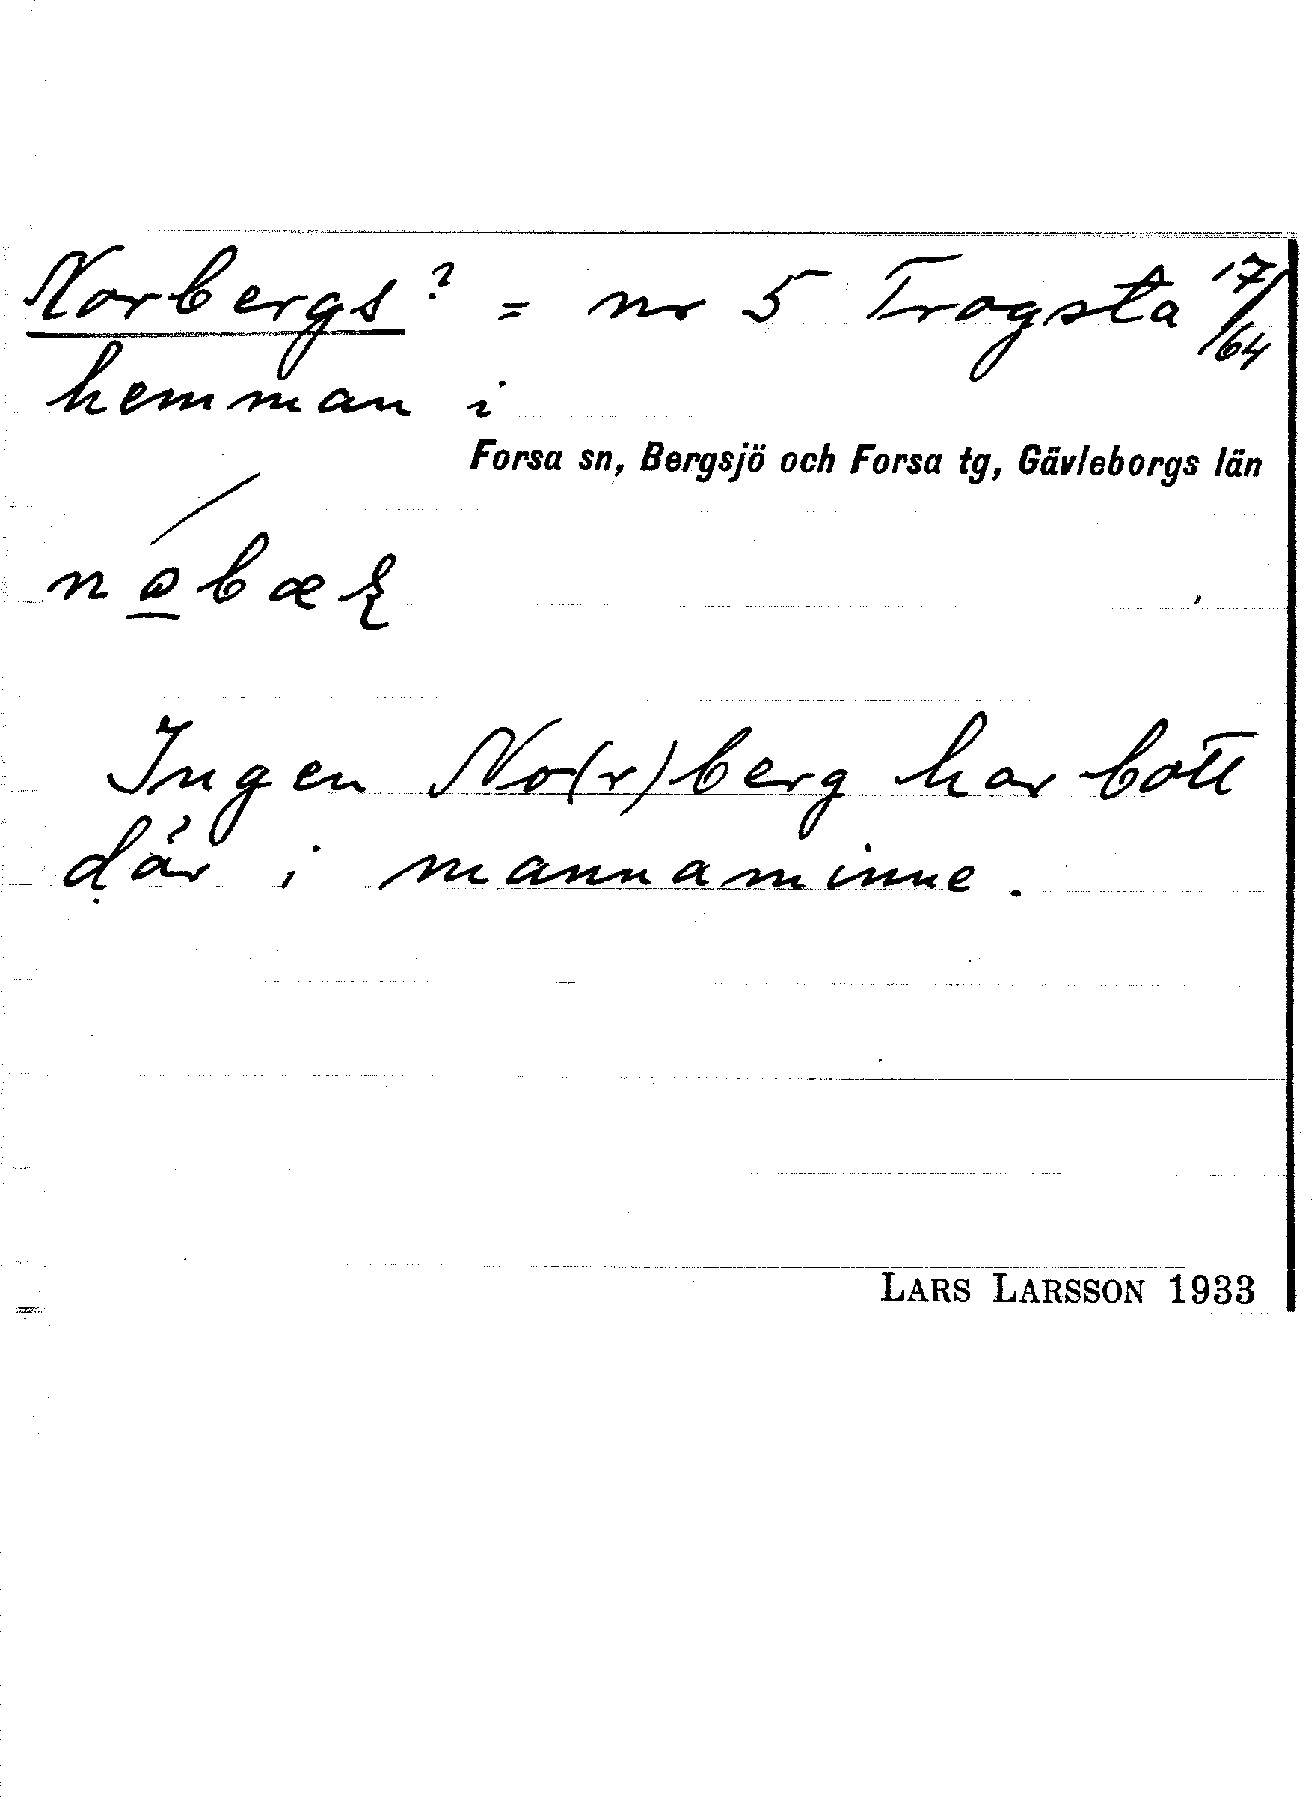 Norbergs? = nr 5 Trogsta 17/64
hemman i
Forsa sn, Bergsjö och Forsa tg, Gävleborgs län
Ingen No(r)berg har bott
där i mannaminne.
LARS LARSSON 1933